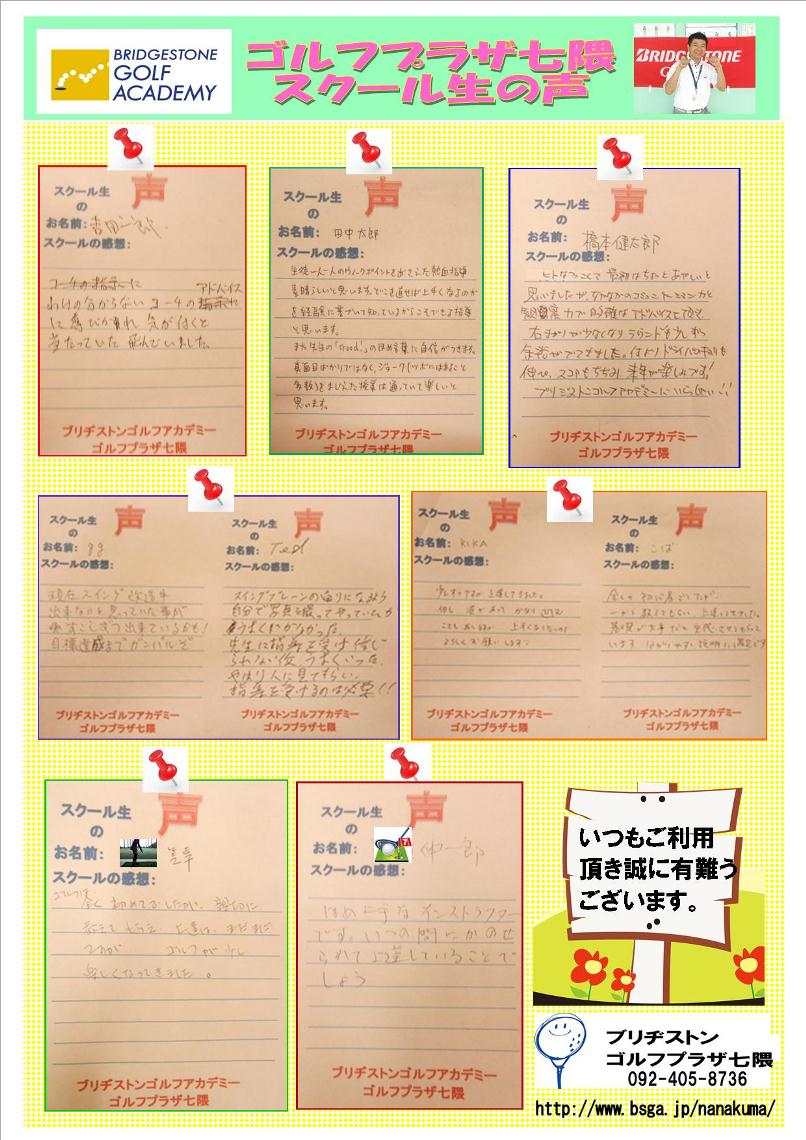 BRIDGESTONE
GOLF
ACADEMY
ゴルフプラザ七隈
スクール生の声
BRIDGESTONE
声
スクール生
の
お名前:
スクールの感想:
コーチの指示に
アドバイス
わけの分からない コーチの指示
に 喜びが
当たっていた 飛んでいました。
ブリヂストンゴルフアカデミー
ゴルフプラザ七隈
声
スクール生
の
お名前: 田中太郎
スクールの感想:
生徒一人一人のウィークポイントを
素晴らしいと思います。どこを直せば上手くなるのか
を経験に基づいて知っているからこそできる指導
と思います。
また先生の「Good!」のほめ言葉に自信がつきます。
真面目ばかりではなく、ジョーク(ツボにはまること
多数)をまじえた授業は通っていて楽しいと
思います。
ブリヂストンゴルフアカデミー
ゴルフプラザ七隈
声
スクール生
の
お名前: 橋本健太郎
スクールの感想:
最初はちょっとあやしいと
思いましたが、なかなかのコミュニケーションと
観察力で的確なアドバイスで
右まがりが少なくなりラウンドも少しずつ
余裕がでてきました。
伸び、スコアもちぢみ 来年が楽しみです!
ブリヂストンゴルフアカデミーにいらっしゃい!!
ブリヂストンゴルフアカデミー
ゴルフプラザ七隈
声
スクール生
の
お名前: gg
スクールの感想:
現在スイング改造中
出来ないと思っていた事が
少しずつ出来ているかも!
目標達成までガンバルぞ
ブリヂストンゴルフアカデミー
ゴルフプラザ七隈
声
スクール生
の
お名前: Ted
スクールの感想:
スイングプレーンの通りになるよう
自分で写真を撮ってやっていたが
うまくいかなかった
先生に指導を受け 信じ
られない位、うまくいった。
やはり人に見てもらい
指導を受けるのは必要!!
ブリヂストンゴルフアカデミー
ゴルフプラザ七隈
声
スクール生
の
お名前: KIKA
スクールの感想:
少しずつですが上達してきました。
よろしくお願いします。
ブリヂストンゴルフアカデミー
ゴルフプラザ七隈
声
スクール生
の
お名前: こば
スクールの感想:
全くの初心者でしたが
一から教えてもらい、上達してきました。
基礎が大事だと
います
ブリヂストンゴルフアカデミー
ゴルフプラザ七隈
声
スクール生
の
お名前:
スクールの感想:
ゴルフは
全く初めてでしたが、親切に
教えてもらえ、上達は、まだまだ
ですが ゴルフが少し
楽しくなってきました。
ブリヂストンゴルフアカデミー
ゴルフプラザ七隈
声
スクール生
の
お名前:
スクールの感想:
ほめ上手なインストラクター
です。いつの間にかのせ
られて上達していることで
しょう
ブリヂストンゴルフアカデミー
ゴルフプラザ七隈
いつもご利用
頂き誠に有難う
ございます。
ブリヂストン
ゴルフプラザ七隈
092-405-8736
http://www.bsga.jp/nanakuma/